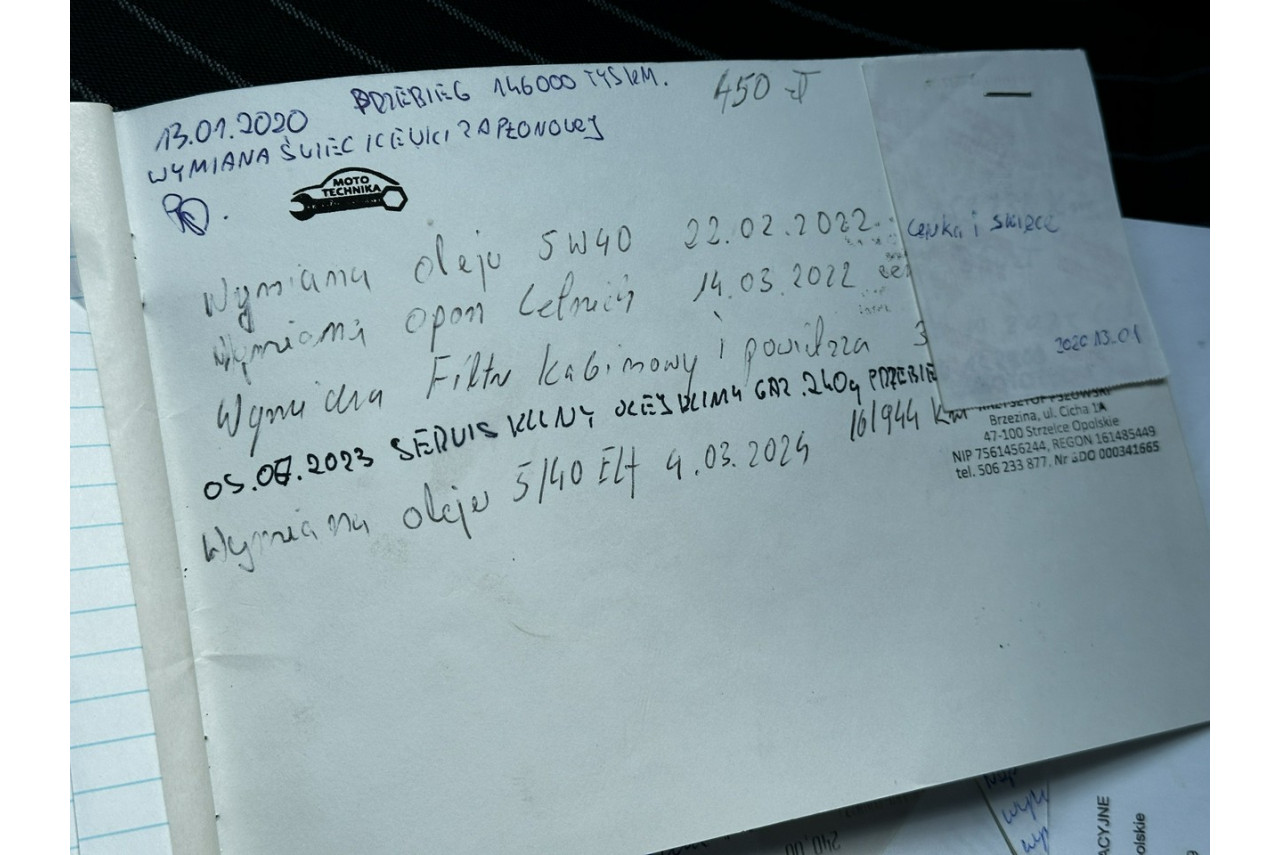 13.01.2020 PRZEBIEG 146000 TYS KM. 450
WYMIANA ŚWIEC I CEWKI ZAPŁONOWEJ
MOTO
TECHNIKA
Wymiana oleju 5W40 22.02.2022
cewka i świece
Wymiana opon letnich 14.03.2022
Wymiana Filtr kabinowy i powietrza 3
2020 13.01
05.07.2023 SERVIS KLIMY OLEJ KLIMA GAZ .240g PRZEBIE
Wymiana oleju 5/40 Elf 4.03.2024 161944 Km
Brzezina, ul. Cicha 1A
47-100 Strzelce Opolskie
NIP 7561456244, REGON 161485449
tel. 506 233 877, Nr BDO 000341665
240,00
ACYJNE
olskie